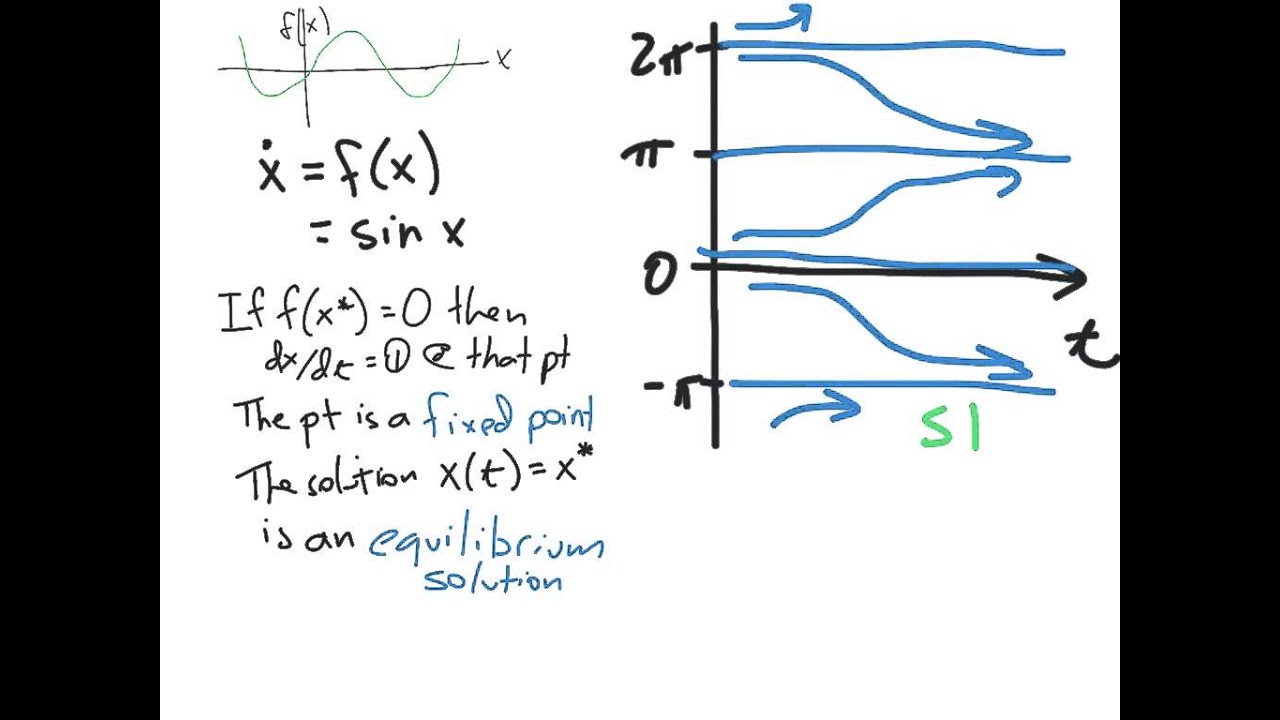 f(x)
x
ẋ = f(x)
= sin x
If f(x*) = 0 then
dx/dt = 0 @ that pt
The pt is a fixed point
The solution x(t) = x*
is an equilibrium
solution
2π
π
0
-π
t
Sl